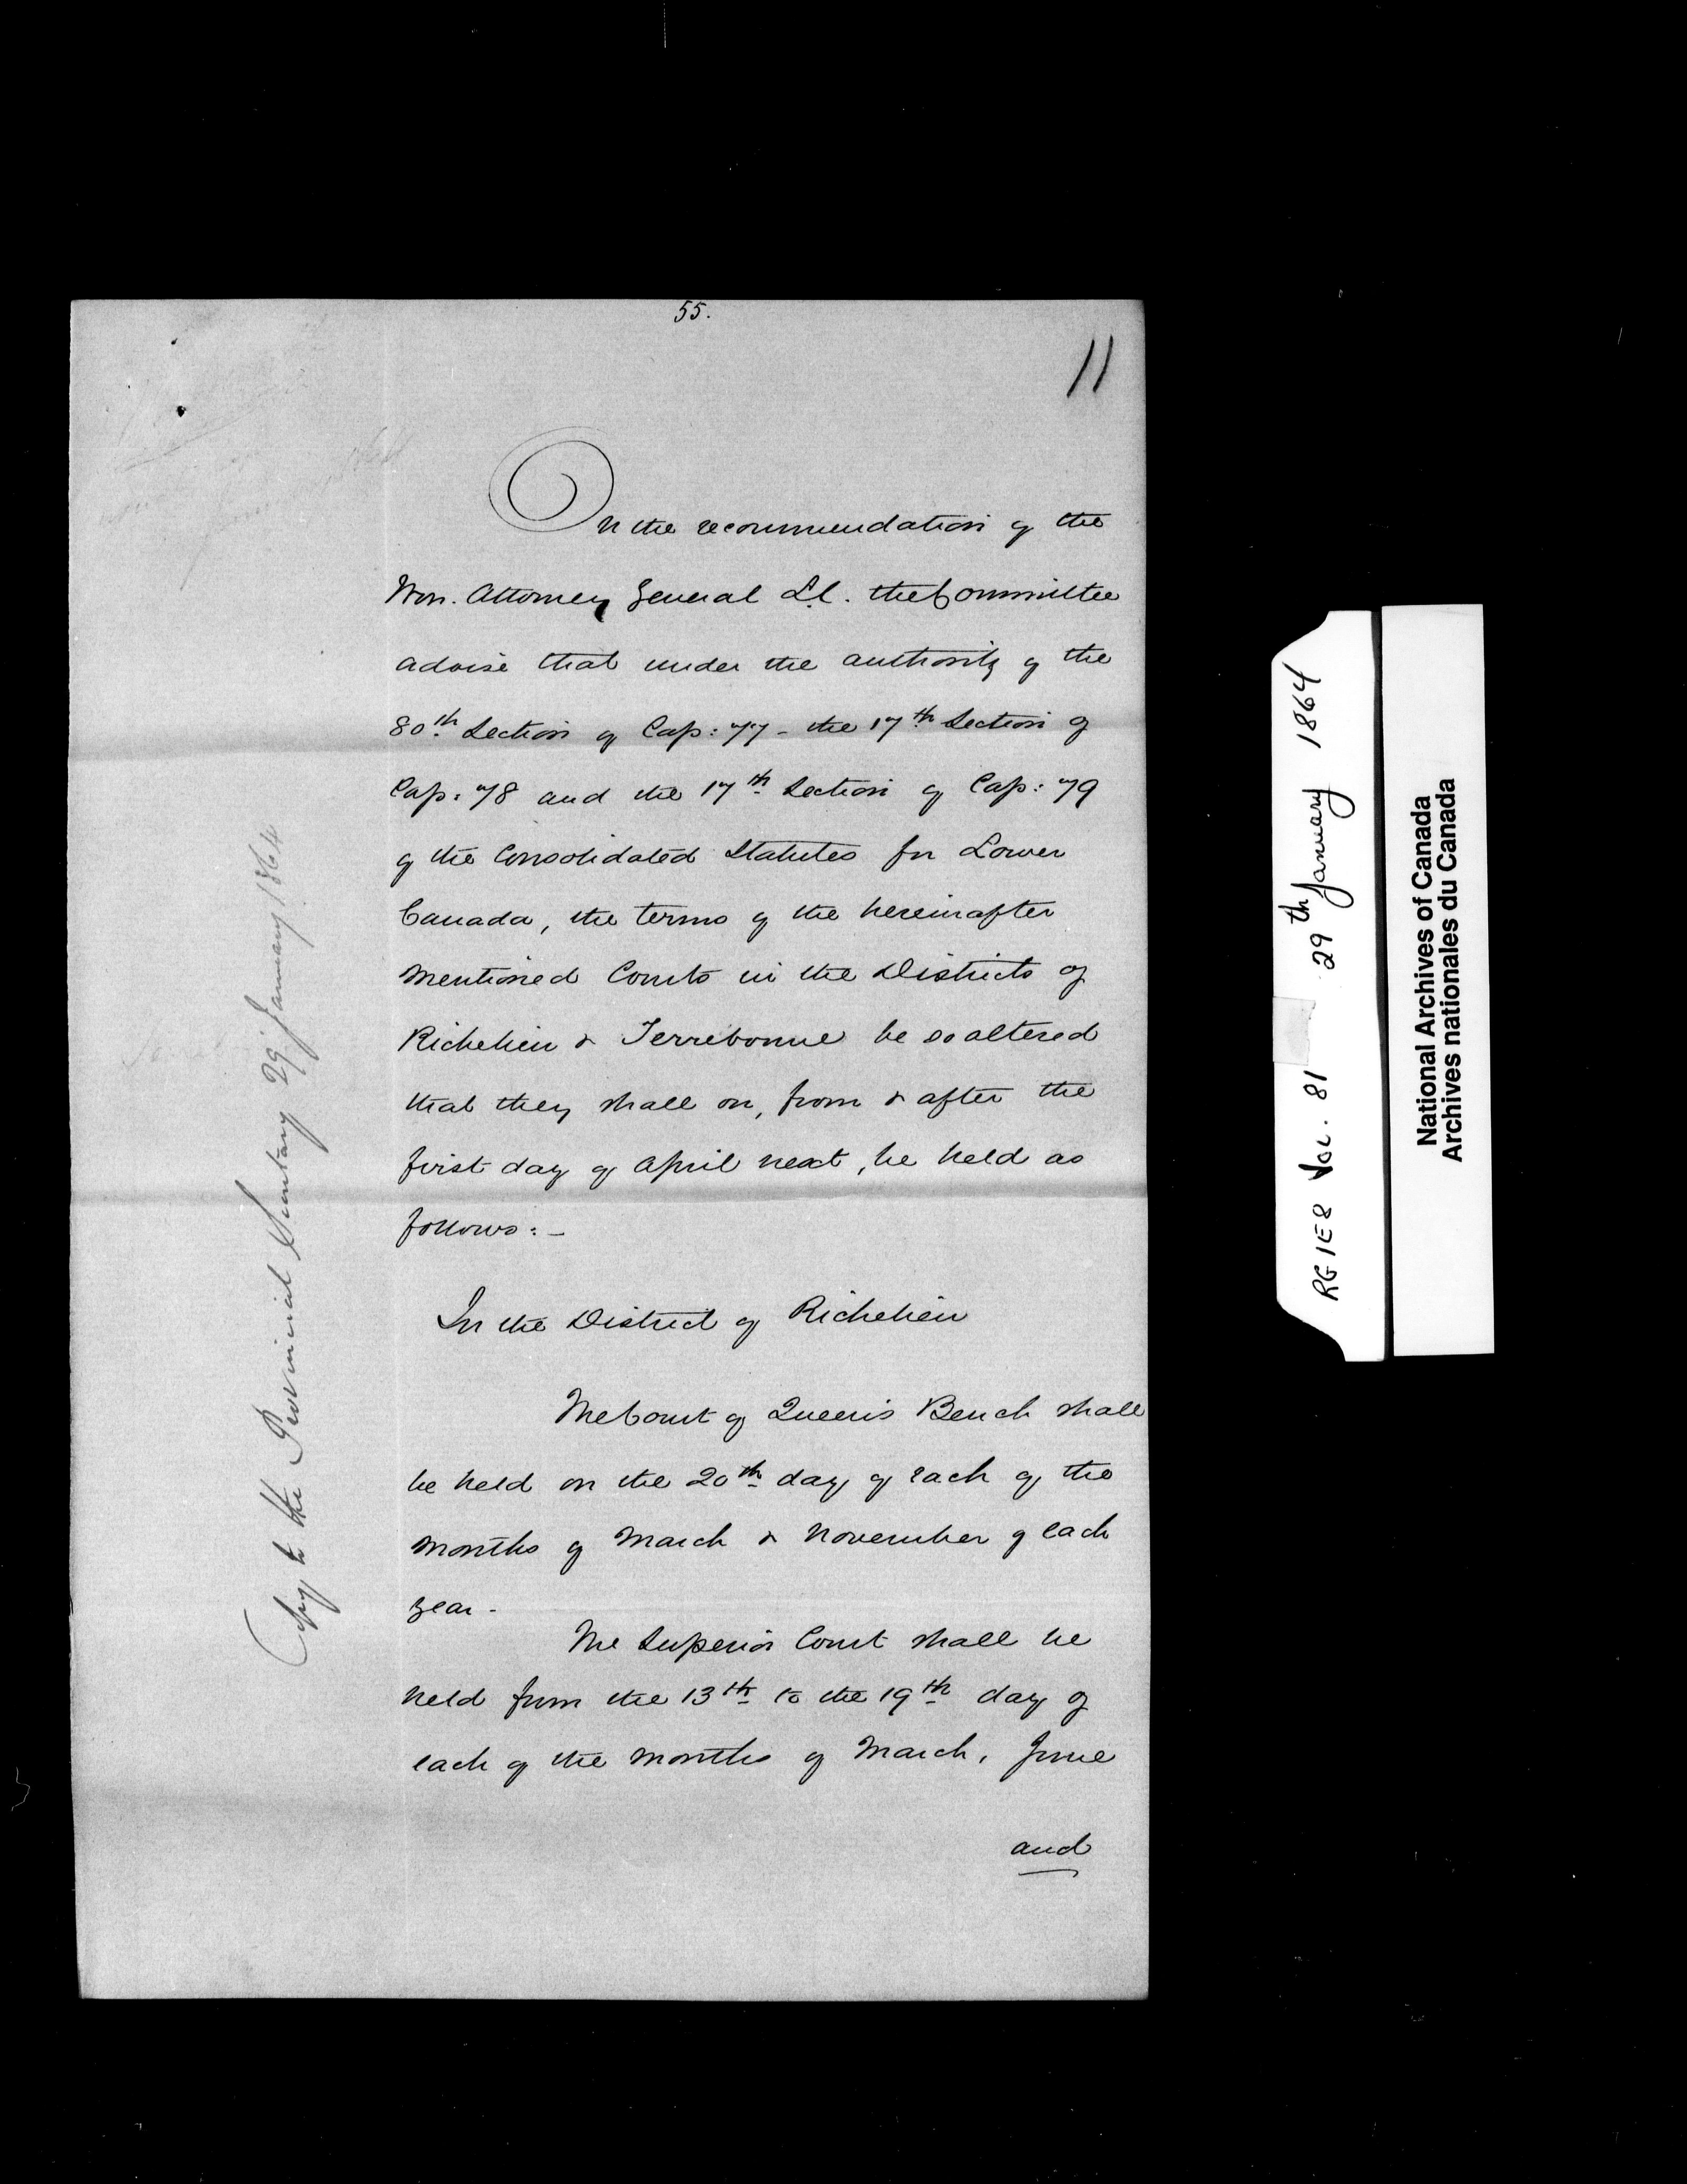 55.
11
On the recommendation of the
Hon. Attorney General L.C. the Committee
advise that under the authority of the
80th Section of Cap: 77 - the 17th Section of
Cap: 78 and the 17th Section of Cap: 79
of the Consolidated Statutes for Lower
Canada, the terms of the hereinafter
mentioned Courts in the Districts of
Richelieu & Terrebonne be so altered
that they shall on, from & after the
first day of April next, be held as
follows:-
In the District of Richelieu
The Court of Queen's Bench shall
be held on the 20th day of each of the
months of March & November of each
year -
The Superior Court shall be
held from the 13th to the 19th day of
each of the months of March, June
and
Copy to the Provincial Secretary 29 January 1864
RG1E8 Vol. 81 29th January 1864
National Archives of Canada
Archives nationales du Canada